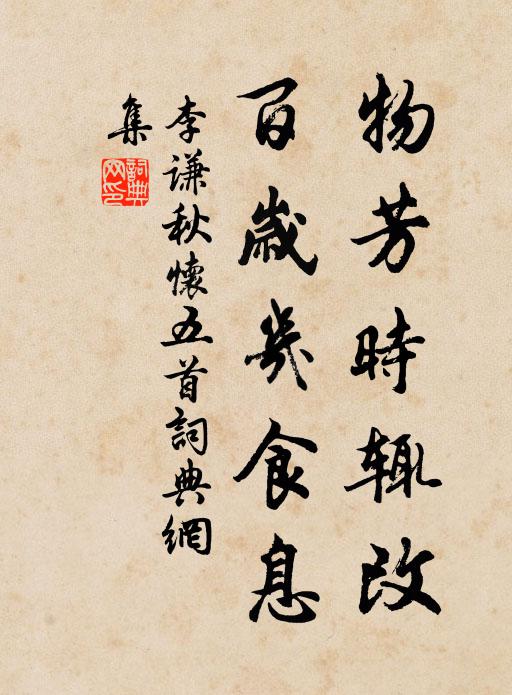 物芳時輒改
百歲幾食息
李謙秋懷五首詞典網
集
詞典
网印